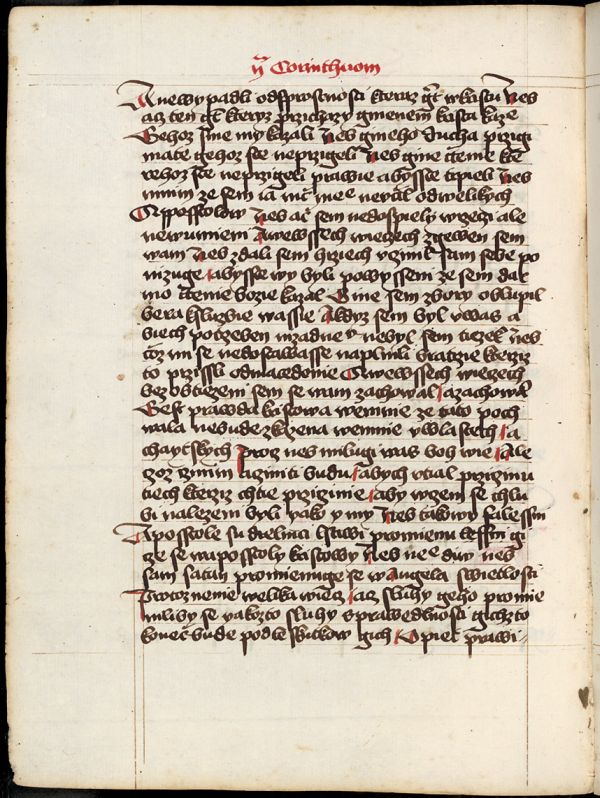 ij Corinthuom
A newypadli odsprostnosti kteraz gt wkristu Nes
acz ten gt kteryz przichazy gineͫ kristu kaze
Gehoz sme my kazali nes gineho ducha przigi
mate gehoz ste neprzigeli nes gine cztenie kte
rehoz ste neprzigeli prawie abysste trpieli Nes
mnim ze sem ia nic mee neucil od welikych
Apposstolow nes ac sem nedospiely wrzeczi ale
ne wumieni Awewssech wieczech zgewen sem
wam Nes zdali sem hrziech vczinil sam sebe po
nizuge abysste wy byli powysseni ze sem dar
mo cztenie bozie kazal Gine sem zbory oblupil
bera k sluzbie wassie A kdyz sem byl vwas a
biech potrzeben nizadnev nebyl sem tiezek nes
coz mi se nedostawasse naplnili bratrzie kterziz
to przissli od macedonie A wewssech wieczech
bez obtiezeni sem se wam zachowal a zachowam
Gest prawda kristowa wemnie ze tato poch
wala nebude zkazena wemnie vwlastech a
chayskych Proz nes milugi was boh wie Ale
coz czinim a cziniti budu abych vtial przicinu
tiech kterziz chtie prziginie aby wnem se chlu
bi nalezeni byli yako y my Nes takowi falessni
Apostole su dielnici lstiwi promieniu ...
ze se wapostoly kristowy Nes nee diw nes
sam satan promienuge se w angela swietlosti
Protoz nenie welika wiecz acz sluhy geho promie
niliby se yakzto sluhy sprawedlnosti gichzto
konecz bude podle skutkow gich Opiet prawi-